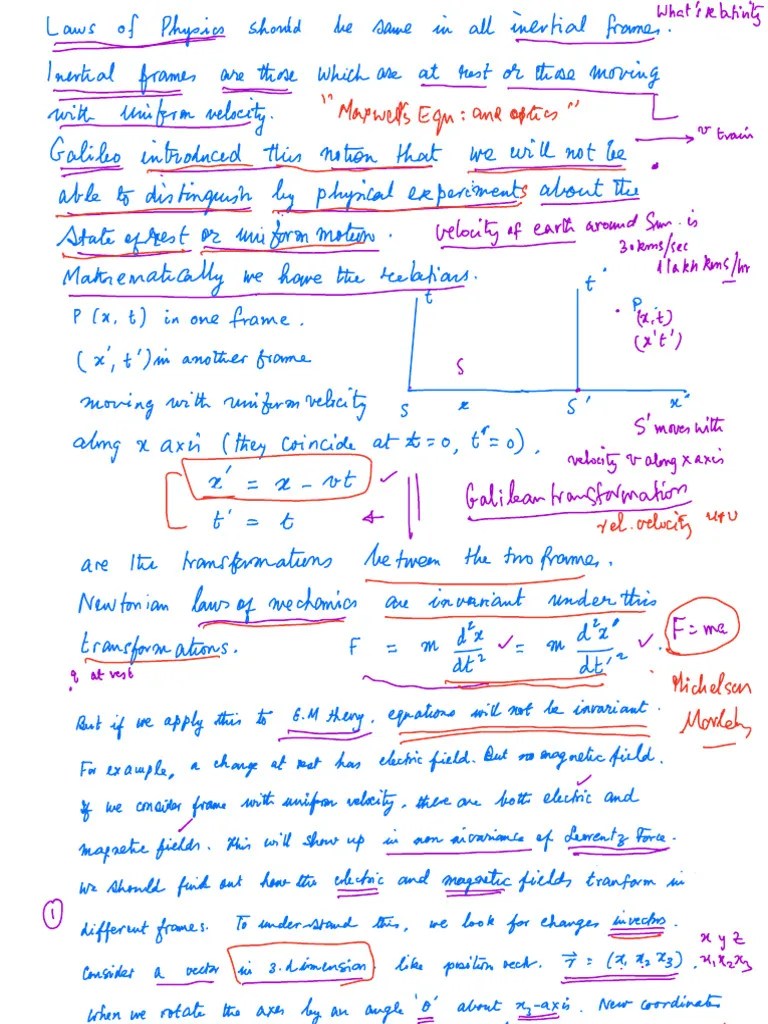 What's relativity
Laws of Physics should be same in all inertial frames.
Inertial frames are those which are at rest or those moving
with uniform velocity. "Maxwell's Eqn: and optics"
v train
Galileo introduced this notion that we will not be
able to distinguish by physical experiments about the
State of rest or uniform motion. velocity of earth around Sun is
30 kms/sec
1 lakh kms/hr
Mathematically we have the relations.
t t'
P (x, t) in one frame.
P
(x, t)
(x' t')
(x', t') in another frame
S
moving with uniform velocity
S x S' x'
S' moves with
along x axis (they coincide at t=0, t'=0),
velocity v along x axis
x' = x - vt
Galilean transformation
t' = t
rel. velocity u+v
are the transformations between the two frames.
Newtonian laws of mechanics are invariant under this
transformations. F = m d²x/dt² = m d²x'/dt'² . F = ma
q at rest
Michelson
Morley
But if we apply this to E.M theory, equations will not be invariant.
For example, a charge at rest has electric field. But no magnetic field.
If we consider frame with uniform velocity, there are both electric and
magnetic fields. This will show up in non invariance of Lorentz Force.
We should find out how the electric and magnetic fields transform in
1
different frames. To understand this, we look for changes in vectors.
x y z
Consider a vector in 3.dimension like position vectr. r⃗ = (x₁ x₂ x₃). x₁ x₂ x₃
When we rotate the axes by an angle 'θ' about x₃-axis. New coordinates